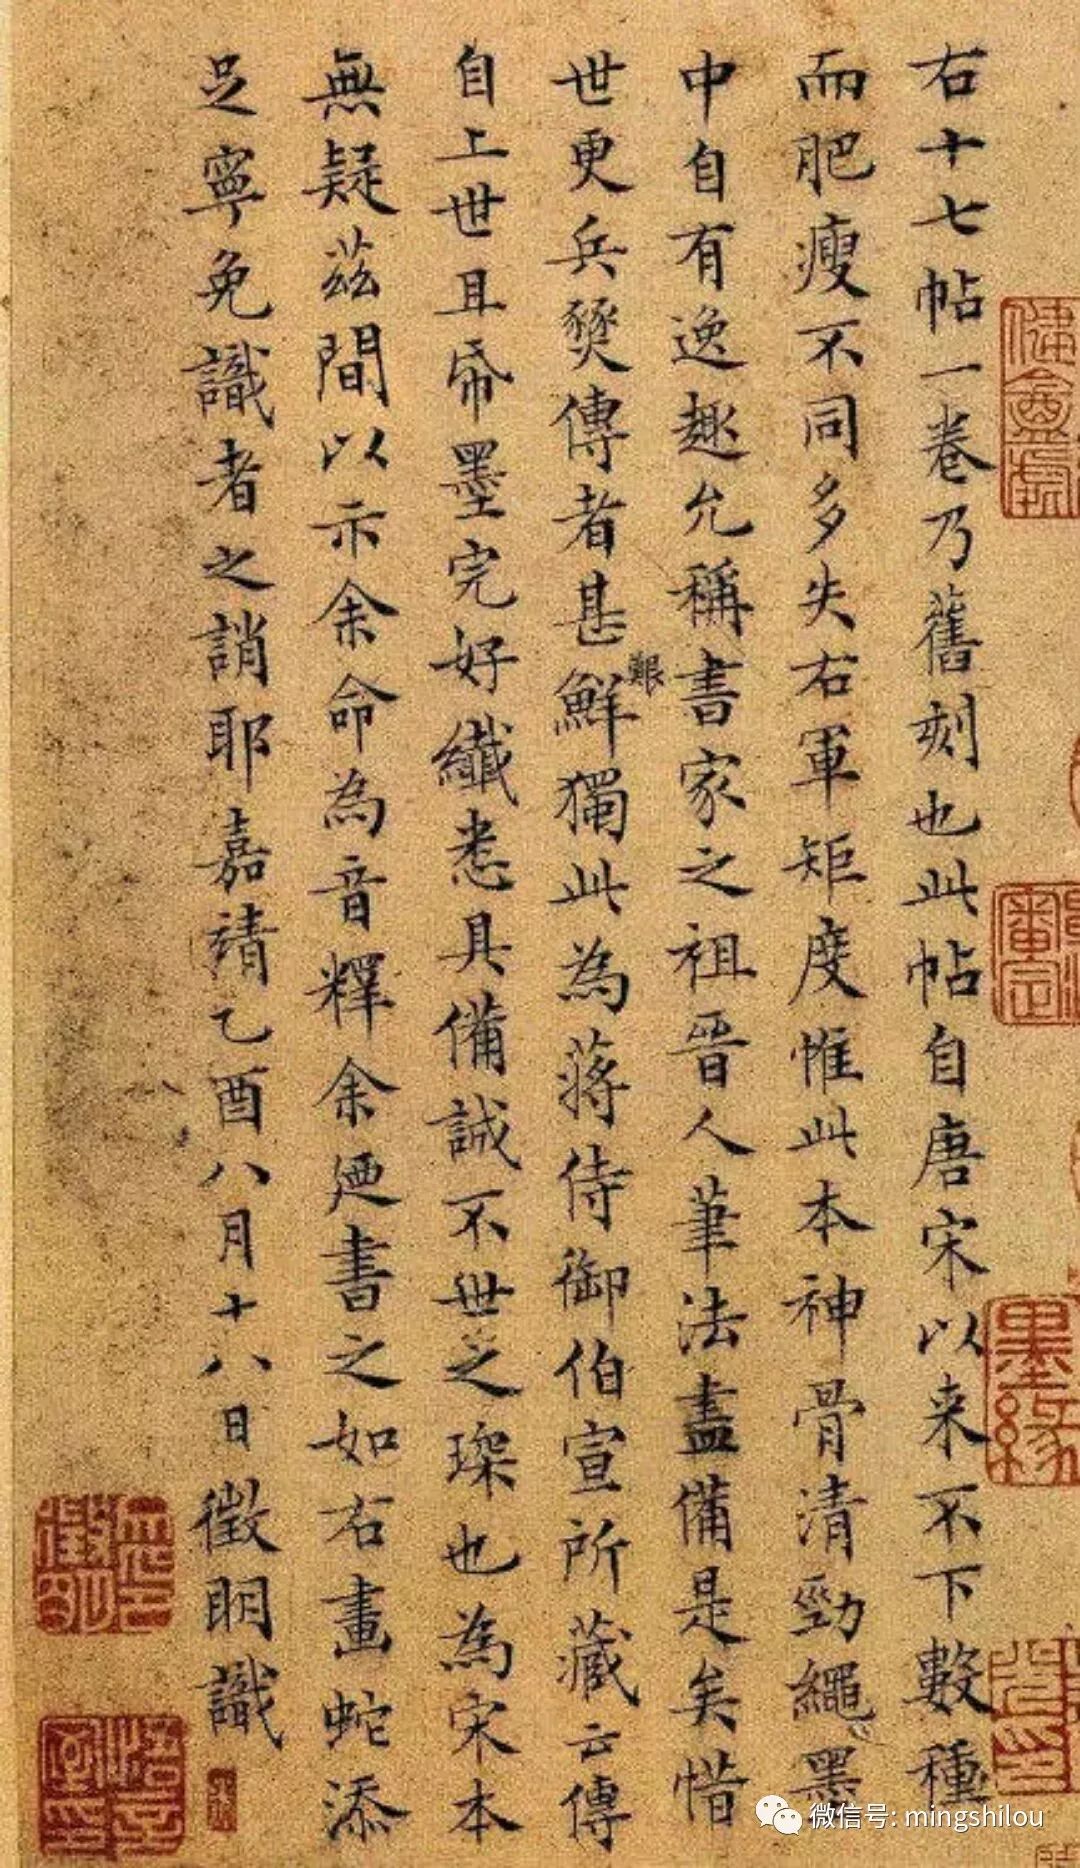 右十七帖一卷乃舊刻也此帖自唐宋以来不下數種
而肥瘦不同多失右軍矩度惟此本神骨清勁繩墨
中自有逸趣允稱書家之祖晉人筆法盡備是矣惜
世更兵燹傳者甚鮮獨此為蔣侍御伯宣所藏云傳
艱
自上世且帋墨完好纖悉具備誠不世之琛也為宋本
無疑茲間以示余命為音釋余廼書之如右畫蛇添
足寧免識者之誚耶嘉靖乙酉八月十八日徵明識
墨緣
微信号: mingshilou